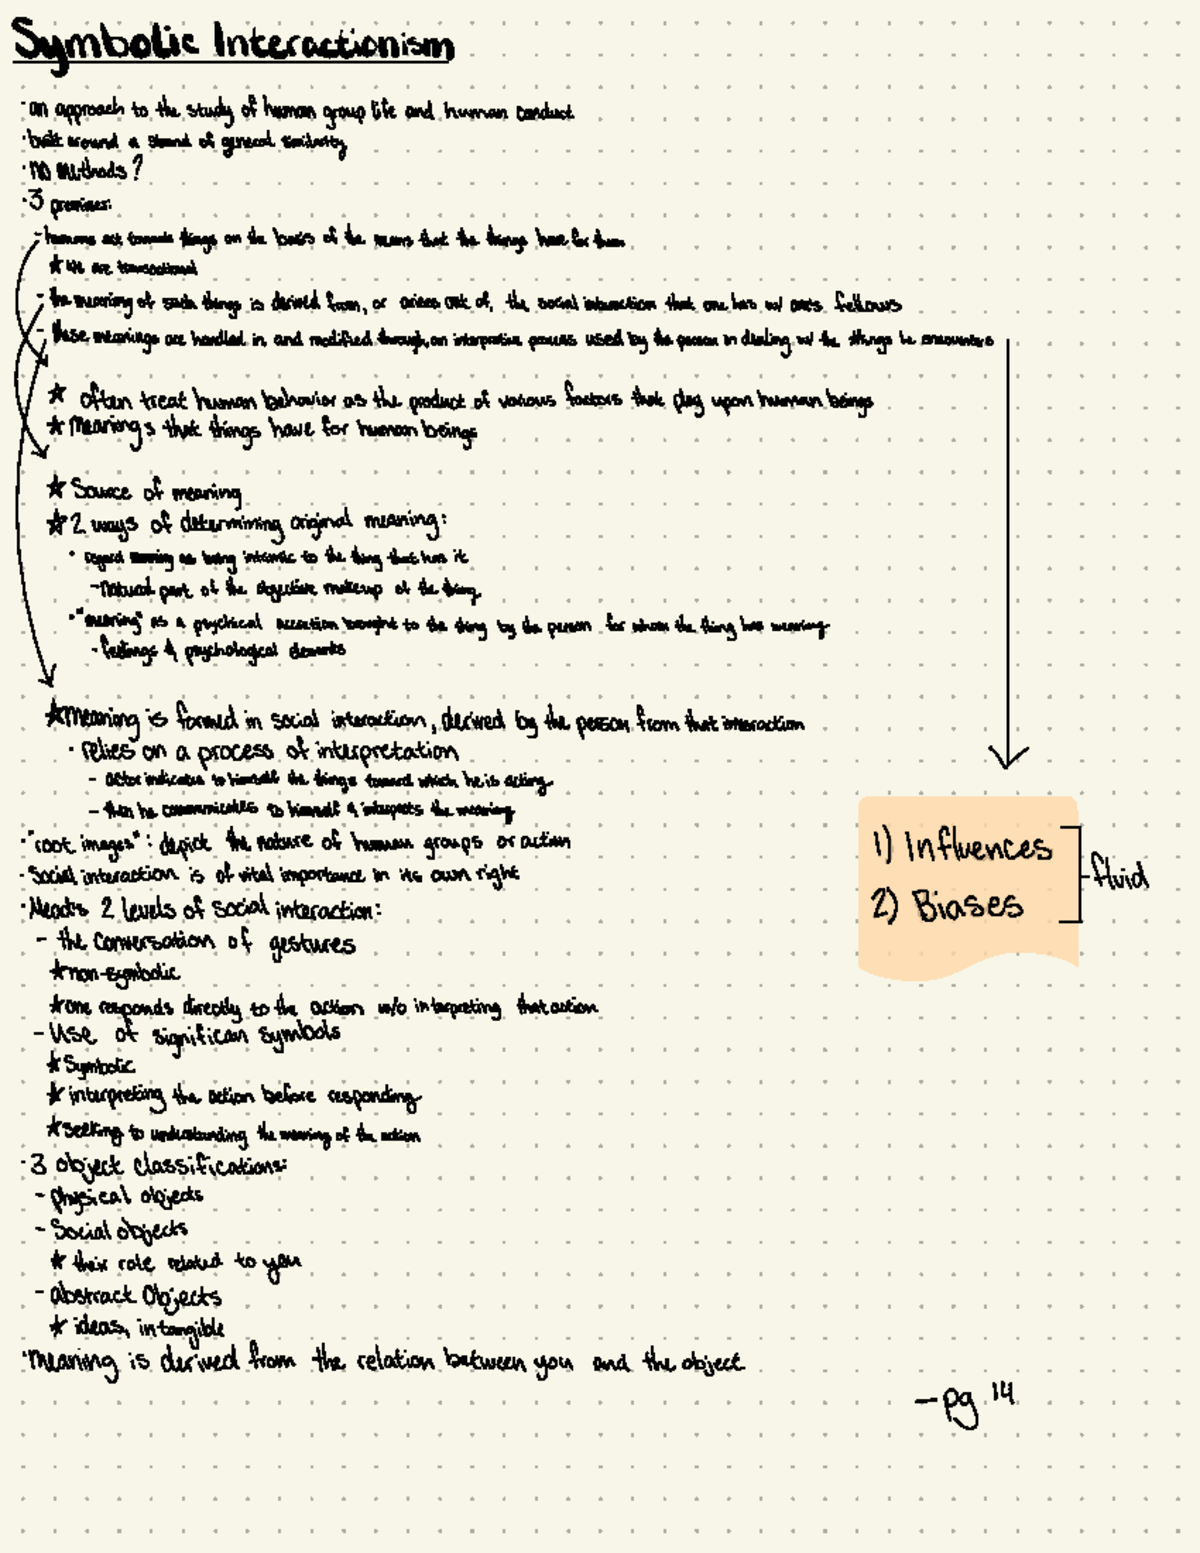 Symbolic Interactionism
· an approach to the study of human group life and human conduct
· built around a strand of general similarity
· no methods?
· 3 premises:
- humans act towards things on the basis of the means that the things have for them
★ We are transactional
- the meaning of such things is derived from, or arises out of, the social interaction that one has w/ one's fellows
- these meanings are handled in and modified through, an interpretive process used by the person in dealing w/ the things he encounters
★ often treat human behavior as the product of various factors that play upon human beings
★ Meanings that things have for human beings
★ Source of meaning
★ 2 ways of determining original meaning:
· regard meaning as being intrinsic to the thing that has it
- natural part of the objective makeup of the thing
· "meaning" as a psychical accretion brought to the thing by the person for whom the thing has meaning
- feelings & psychological elements
★ Meaning is formed in social interaction, derived by the person from that interaction
· relies on a process of interpretation
- actor indicates to himself the things toward which he is acting
- then he communicates to himself & interprets the meaning
· "root images": depict the nature of human groups or action
· Social interaction is of vital importance in its own right
· Mead's 2 levels of social interaction:
- the conversation of gestures
★ non-symbolic
★ one responds directly to the action w/o interpreting that action
- Use of significan symbols
★ Symbolic
★ interpreting the action before responding
★ seeking to understanding the meaning of the action
· 3 object classifications:
- physical objects
- Social objects
★ their role related to you
- abstract Objects
★ ideas, intangible
· Meaning is derived from the relation between you and the object
1) Influences
2) Biases
fluid
- pg 14